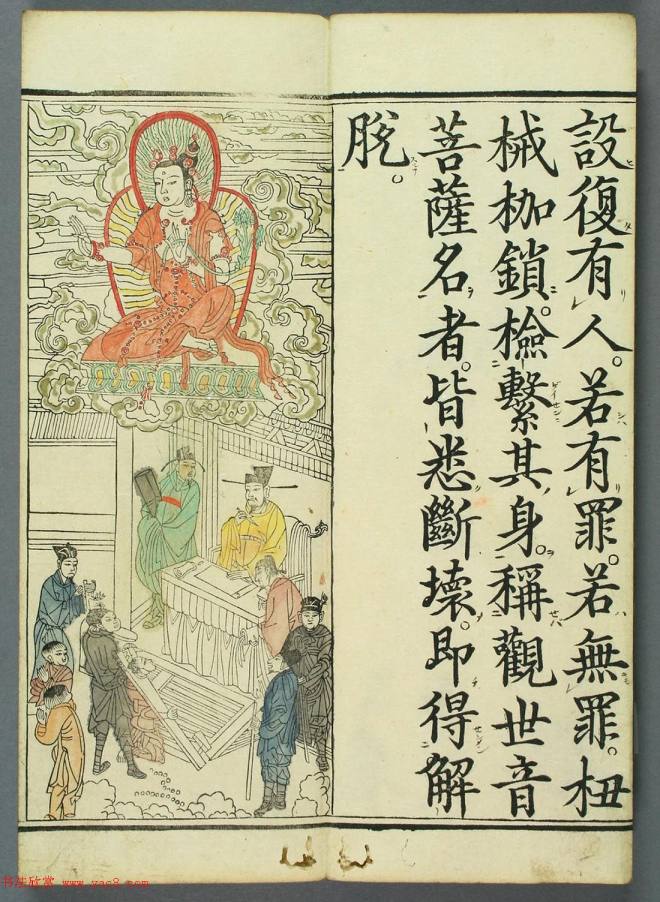 設復有人。若有罪。若無罪。杻
械枷鎖。檢繫其身。稱觀世音
菩薩名者。皆悉斷壞。即得解
脫。
书法欣赏 www.yac8.com